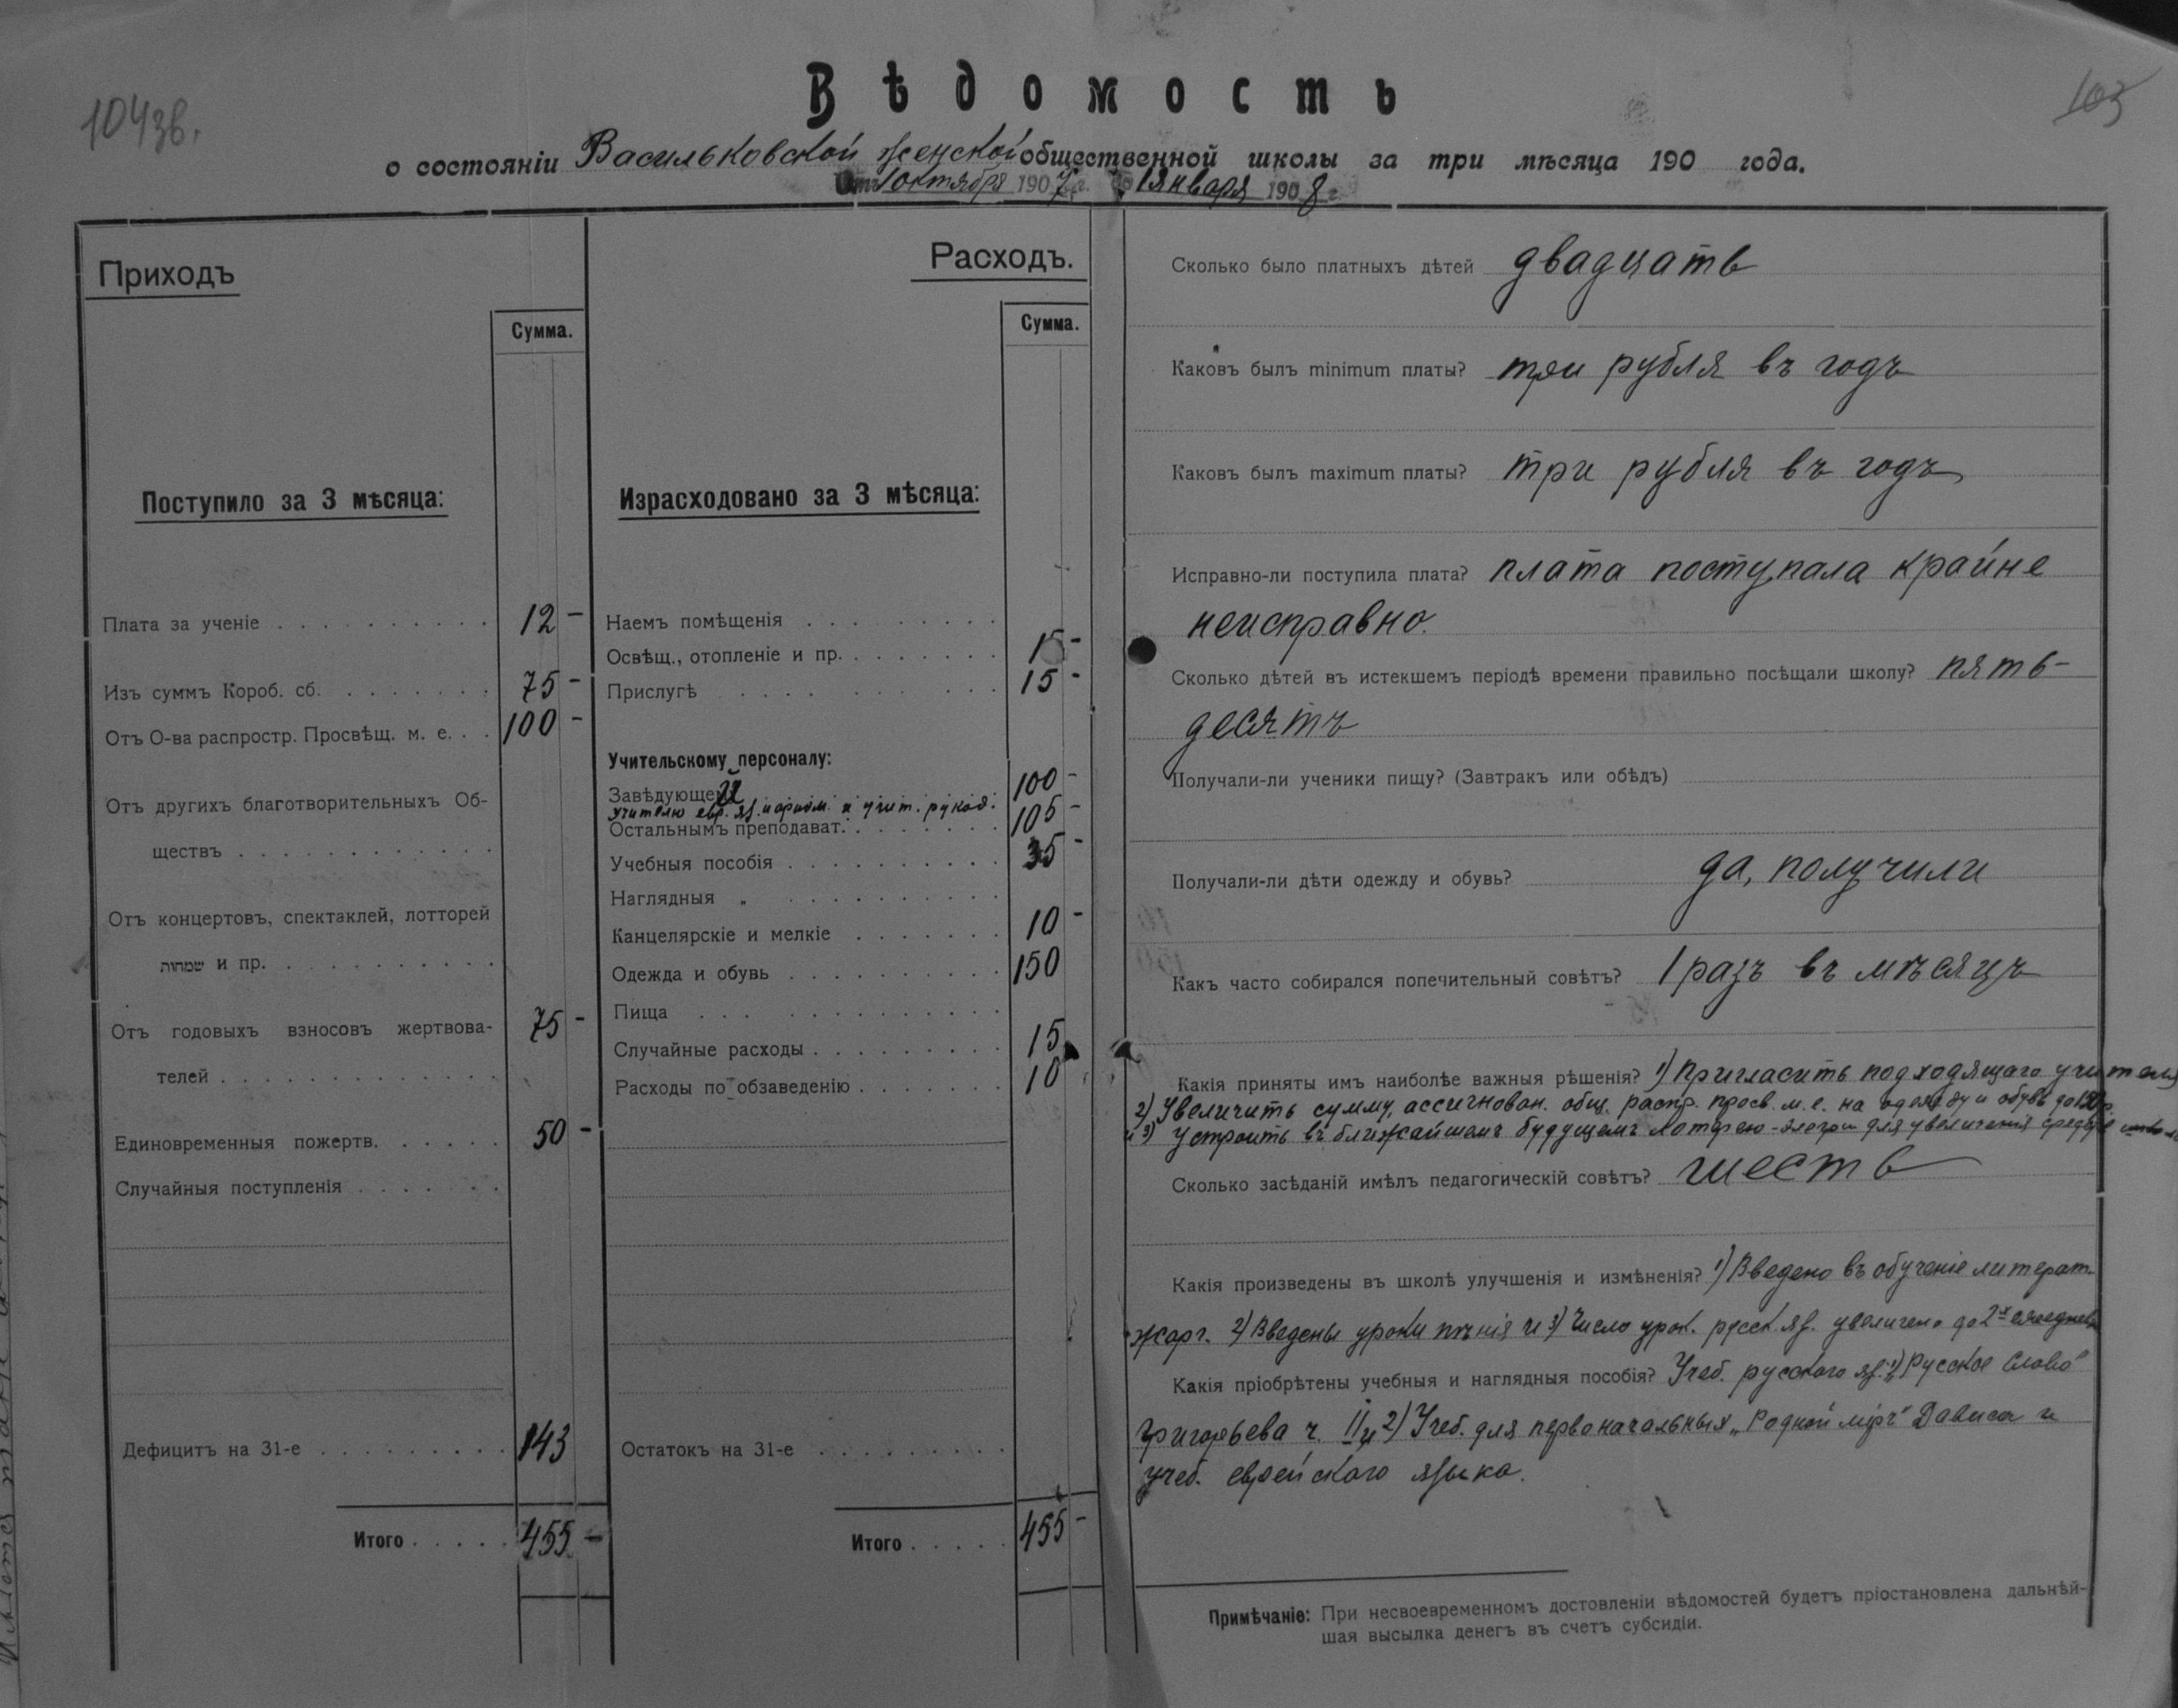 104зв.
103
Вѣдомость
о состоянiи Васильковской женской общественной школы за три мѣсяца 190 года.
Отъ 1 октября 1907 г. до 1 января 1908 г.
Приходъ
Сумма.
Поступило за 3 мѣсяца:
Плата за ученiе . . . . . . . . . . 12 -
Изъ суммъ Короб. сб. . . . . . . . 75 -
Отъ О-ва распростр. Просвѣщ. м. е. . . 100 -
Отъ другихъ благотворительныхъ Об-
ществъ . . . . . . . . . . . .
Отъ концертовъ, спектаклей, лоттoрей
שמחות и пр. . . . . . . . . . .
Отъ годовыхъ взносовъ жертвова- 75 -
телей . . . . . . . . . . . . .
Единовременныя пожертв. . . . . . 50 -
Случайныя поступленiя . . . . . . .
Дефицитъ на 31-е . . . . . . . . . 143
Итого . . . . . 455 -
Расходъ.
Сумма.
Израсходовано за 3 мѣсяца:
Наемъ помѣщенiя . . . . . . . . .
Освѣщ., отопленiе и пр. . . . . . . . 15 -
Прислугѣ . . . . . . . . . . . . 15 -
Учительскому персоналу:
Завѣдующей . . . . . . . . . . . 100 -
учителю евр. яз. и ариѳм. и учит. рукод.
Остальнымъ преподават. . . . . . . . 105 -
Учебныя пособiя . . . . . . . . . . 35 -
Наглядныя „ . . . . . . . . . .
Канцелярскiе и мелкiе . . . . . . . 10 -
Одежда и обувь . . . . . . . . . . 150
Пища . . . . . . . . . . . . . .
Случайные расходы . . . . . . . . . 15
Расходы по обзаведенiю . . . . . . . 10
Остатокъ на 31-е . . . . . . . . .
Итого . . . . . 455 -
Сколько было платныхъ дѣтей двадцать
Каковъ былъ minimum платы? три рубля въ годъ
Каковъ былъ maximum платы? три рубля въ годъ
Исправно-ли поступила плата? плата поступала крайне
неисправно.
Сколько дѣтей въ истекшемъ перiодѣ времени правильно посѣщали школу? пять-
десятъ
Получали-ли ученики пищу? (Завтракъ или обѣдъ)
Получали-ли дѣти одежду и обувь? да, получили
Какъ часто собирался попечительный совѣтъ? 1 разъ въ мѣсяцъ
Какiя приняты имъ наиболѣе важныя рѣшенiя? 1) Пригласить подходящаго учителя
2) Увеличить сумму, ассигнован. общ. распр. просв. м. е. на одежду и обувь до 150 р.
и 3) Устроить въ ближайшемъ будущемъ лотерею-алегри для увеличенiя средствъ школы
Сколько засѣданiй имѣлъ педагогическiй совѣтъ? шесть
Какiя произведены въ школѣ улучшенiя и измѣненiя? 1) Введено въ обученiе литерат.
жарг. 2) Введены уроки пѣнiя и 3) Число урок. русск. яз. увеличено до 2х ежедневн.
Какiя прiобрѣтены учебныя и наглядныя пособiя? Учеб. русского яз.: 1) „Русское слово“
Григорьева ч. II и 2) Учеб. для первоначальныхъ „Родной мiръ“ Дависа и
учеб. еврейского языка.
Примѣчанiе: При несвоевременномъ достовленiи вѣдомостей будетъ прiостановлена дальнѣй-
шая высылка денегъ въ счетъ субсидiи.